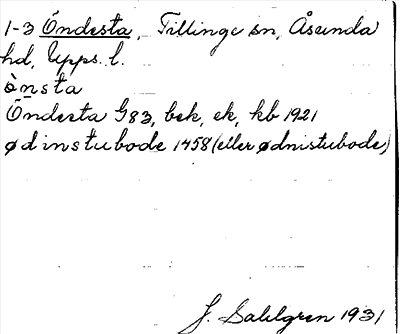 1-3 Öndesta, Tillinge sn, Åsunda
hd, Upps. l.
ònsta
Öndesta G83, bek, ek, kb 1921
ødinstubode 1458 (eller ødnistubode)
J. Sahlgren 1931